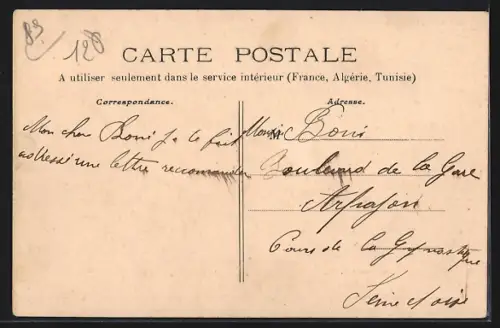 89
128
CARTE POSTALE
A utiliser seulement dans le service intérieur (France, Algérie, Tunisie)
Correspondance.
Adresse.
Mon cher Boni je te fait
adresse une lettre recommandée
M Boni
Boulevard de la Gare
Arpajon
Cours de la Gymnastique
Seine et Oise